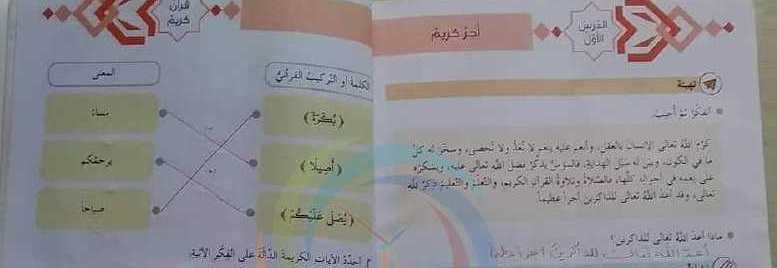 الدرس
الأول
أجر كريم
تهيئة
أتفكر ثم أجيب:
كرم الله تعالى الإنسان بالعقل، وأنعم عليه بنعم لا تعد ولا تحصى، وسخر له كل
ما في الكون، وبين له سبل الهداية، فالمؤمن يذكر فضل الله تعالى عليه، ويشكره
على نعمه في أحواله كلها، فالصلاة وتلاوة القرآن الكريم، والتعلم والتعليم ذكر لله
تعالى، وقد أعد الله تعالى للذاكرين أجرا عظيما
ماذا أعد الله تعالى للذاكرين؟
أعد الله تعالى أجرا عظيما
قرآن
كريم
الكلمة أو التركيب القرآني
المعنى
﴿ بُكْرَةً ﴾
مساءً
﴿ أَصِيلًا ﴾
يرحمكم
﴿ يُصَلِّي عَلَيْكُمْ ﴾
صباحاً
أحدد الآيات الكريمة الدالة على الفكر الآتية: